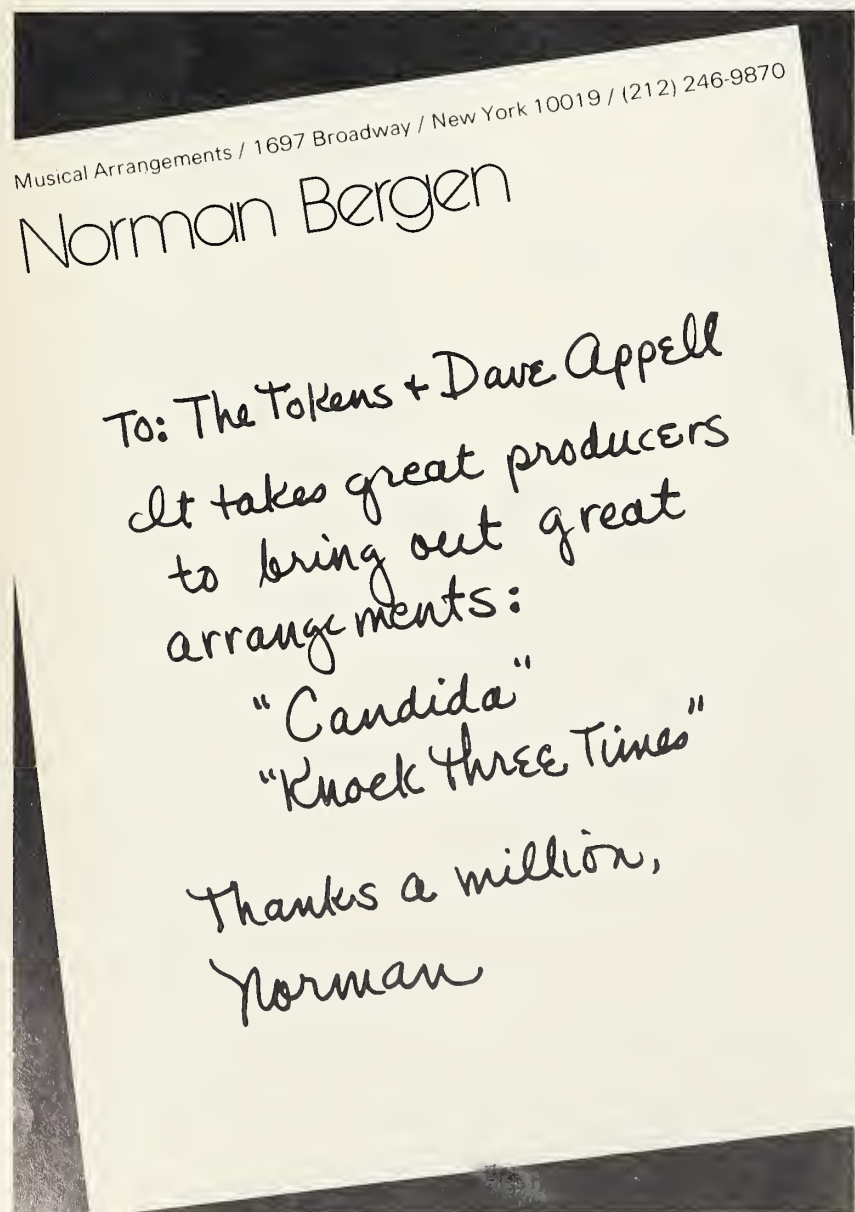 Musical Arrangements / 1697 Broadway / New York 10019 / (212) 246-9870
Norman Bergen
To: The Tokens + Dave Appell
It takes great producers
to bring out great
arrangements:
"Candida"
"Knock Three Times"
Thanks a million,
Norman